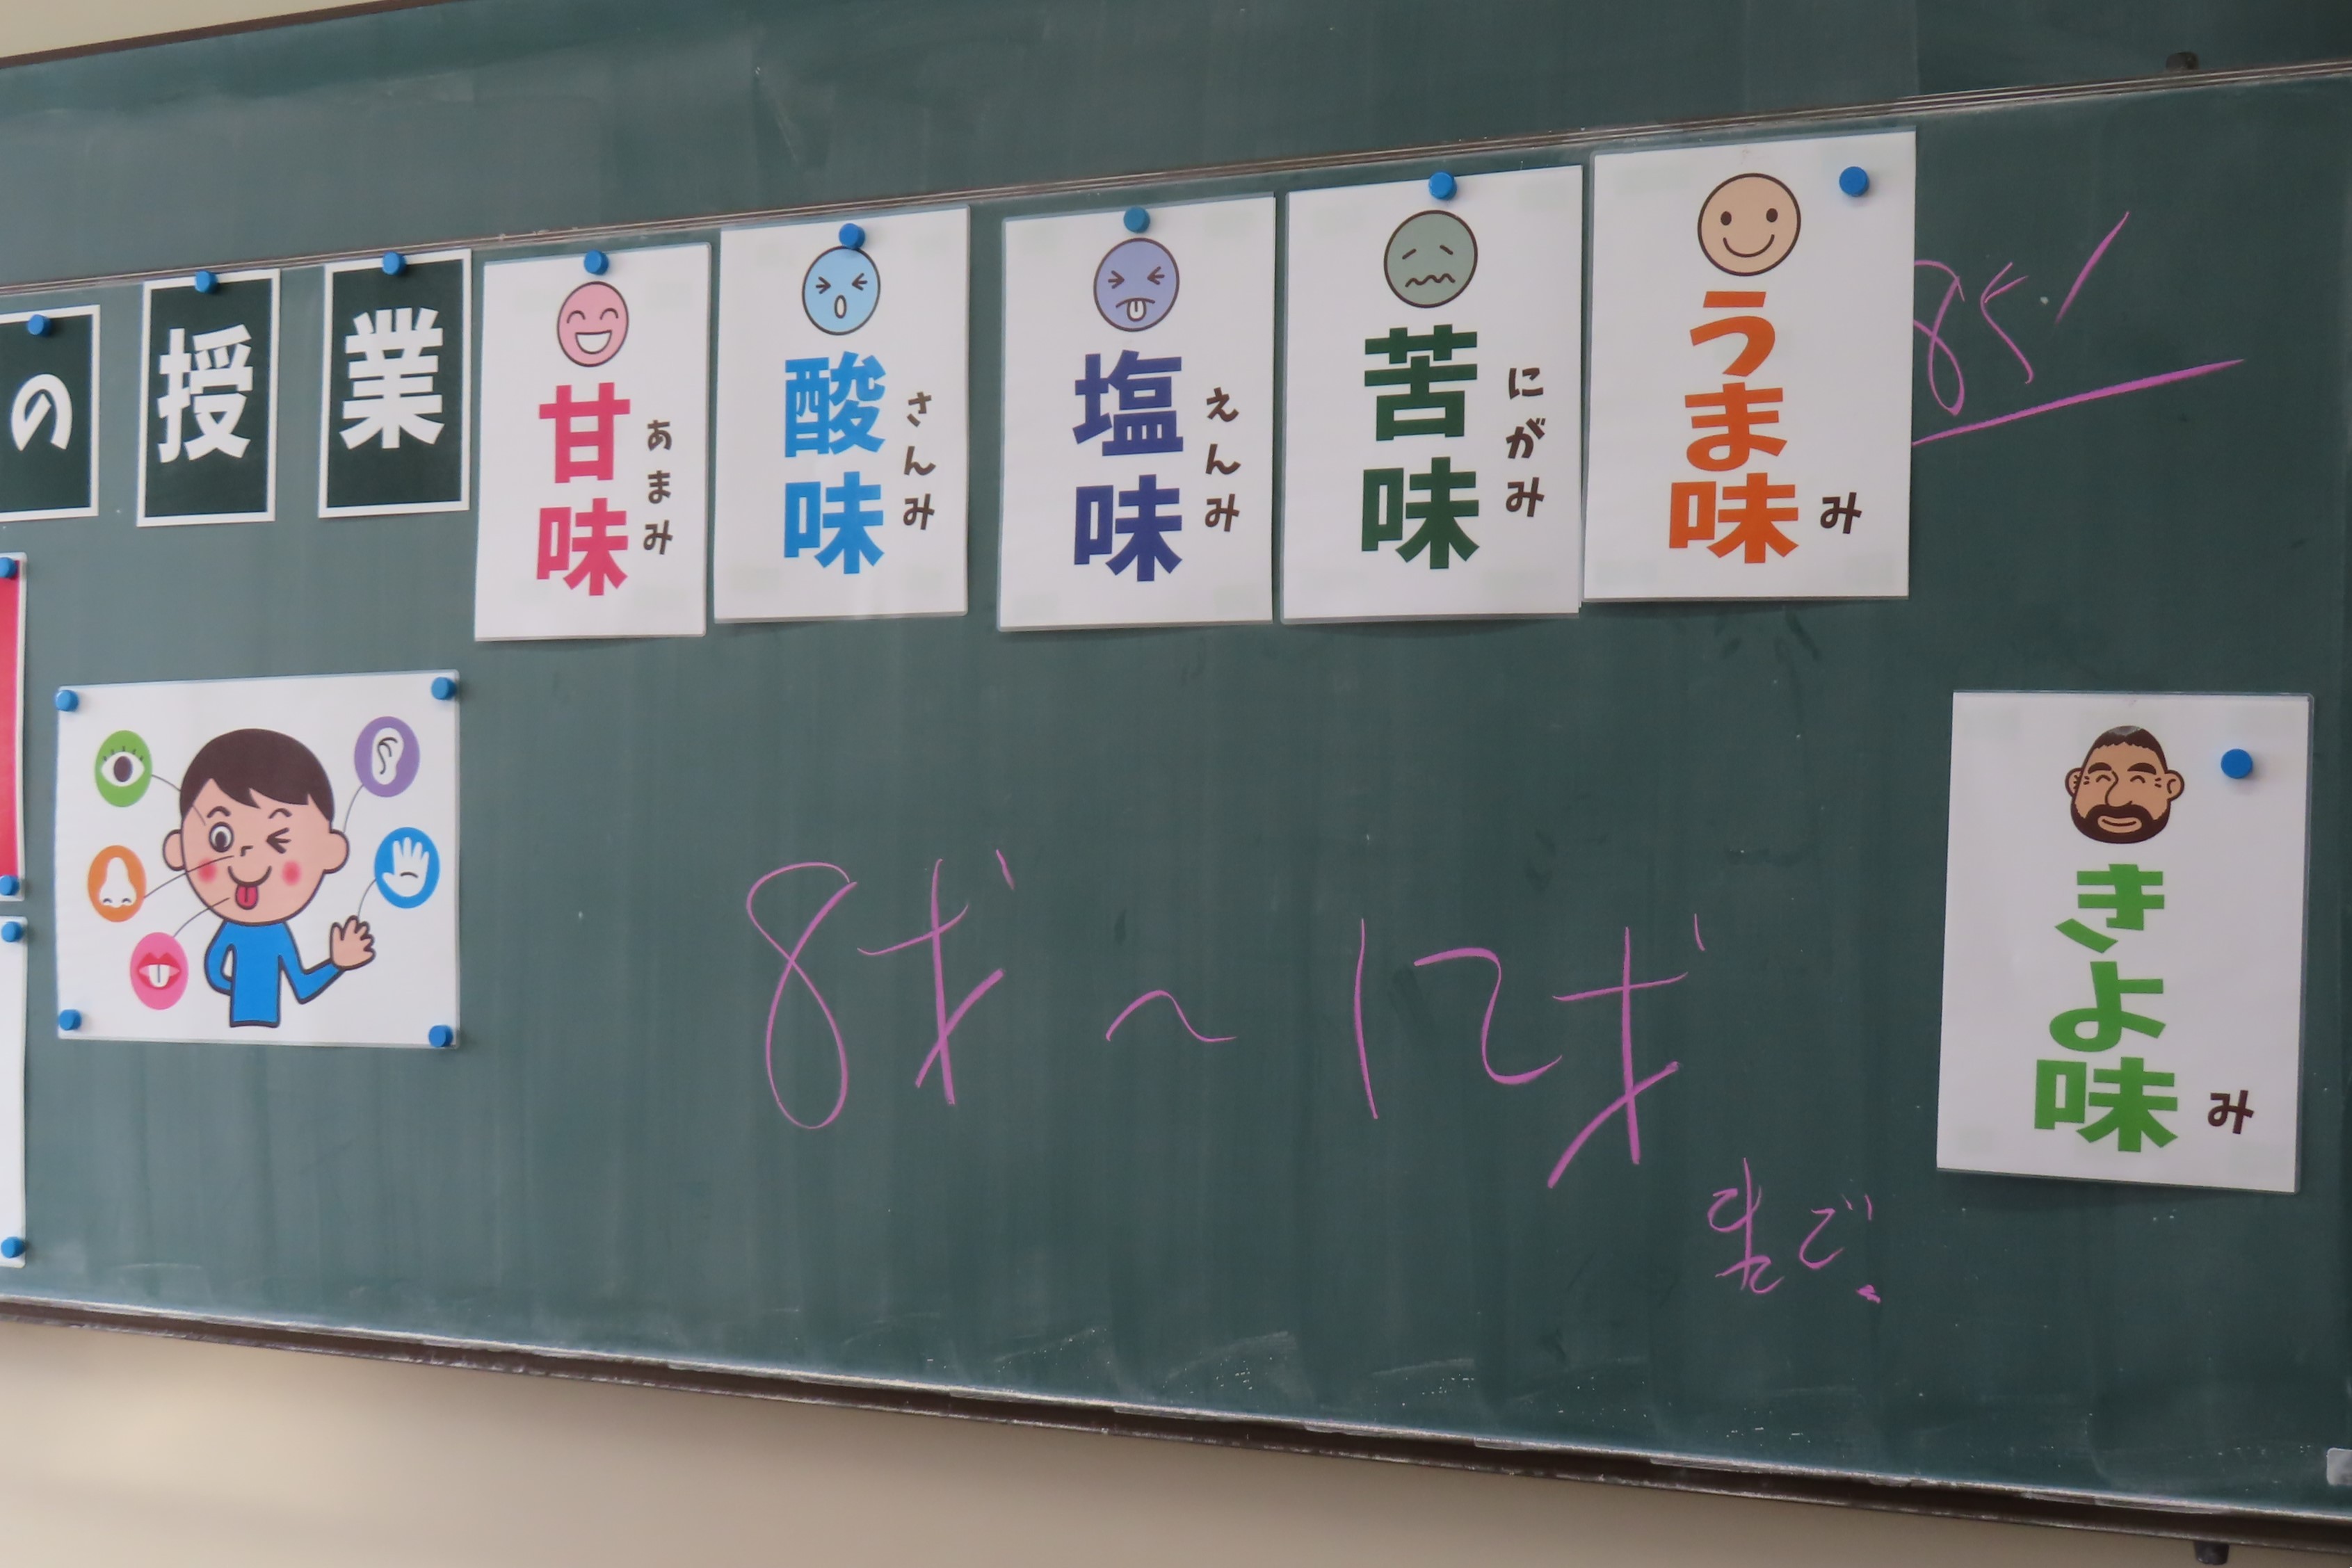 の授業
甘味 あまみ
酸味 さんみ
塩味 えんみ
苦味 にがみ
うま味 み
8才～12才
まで.
きよ味 み